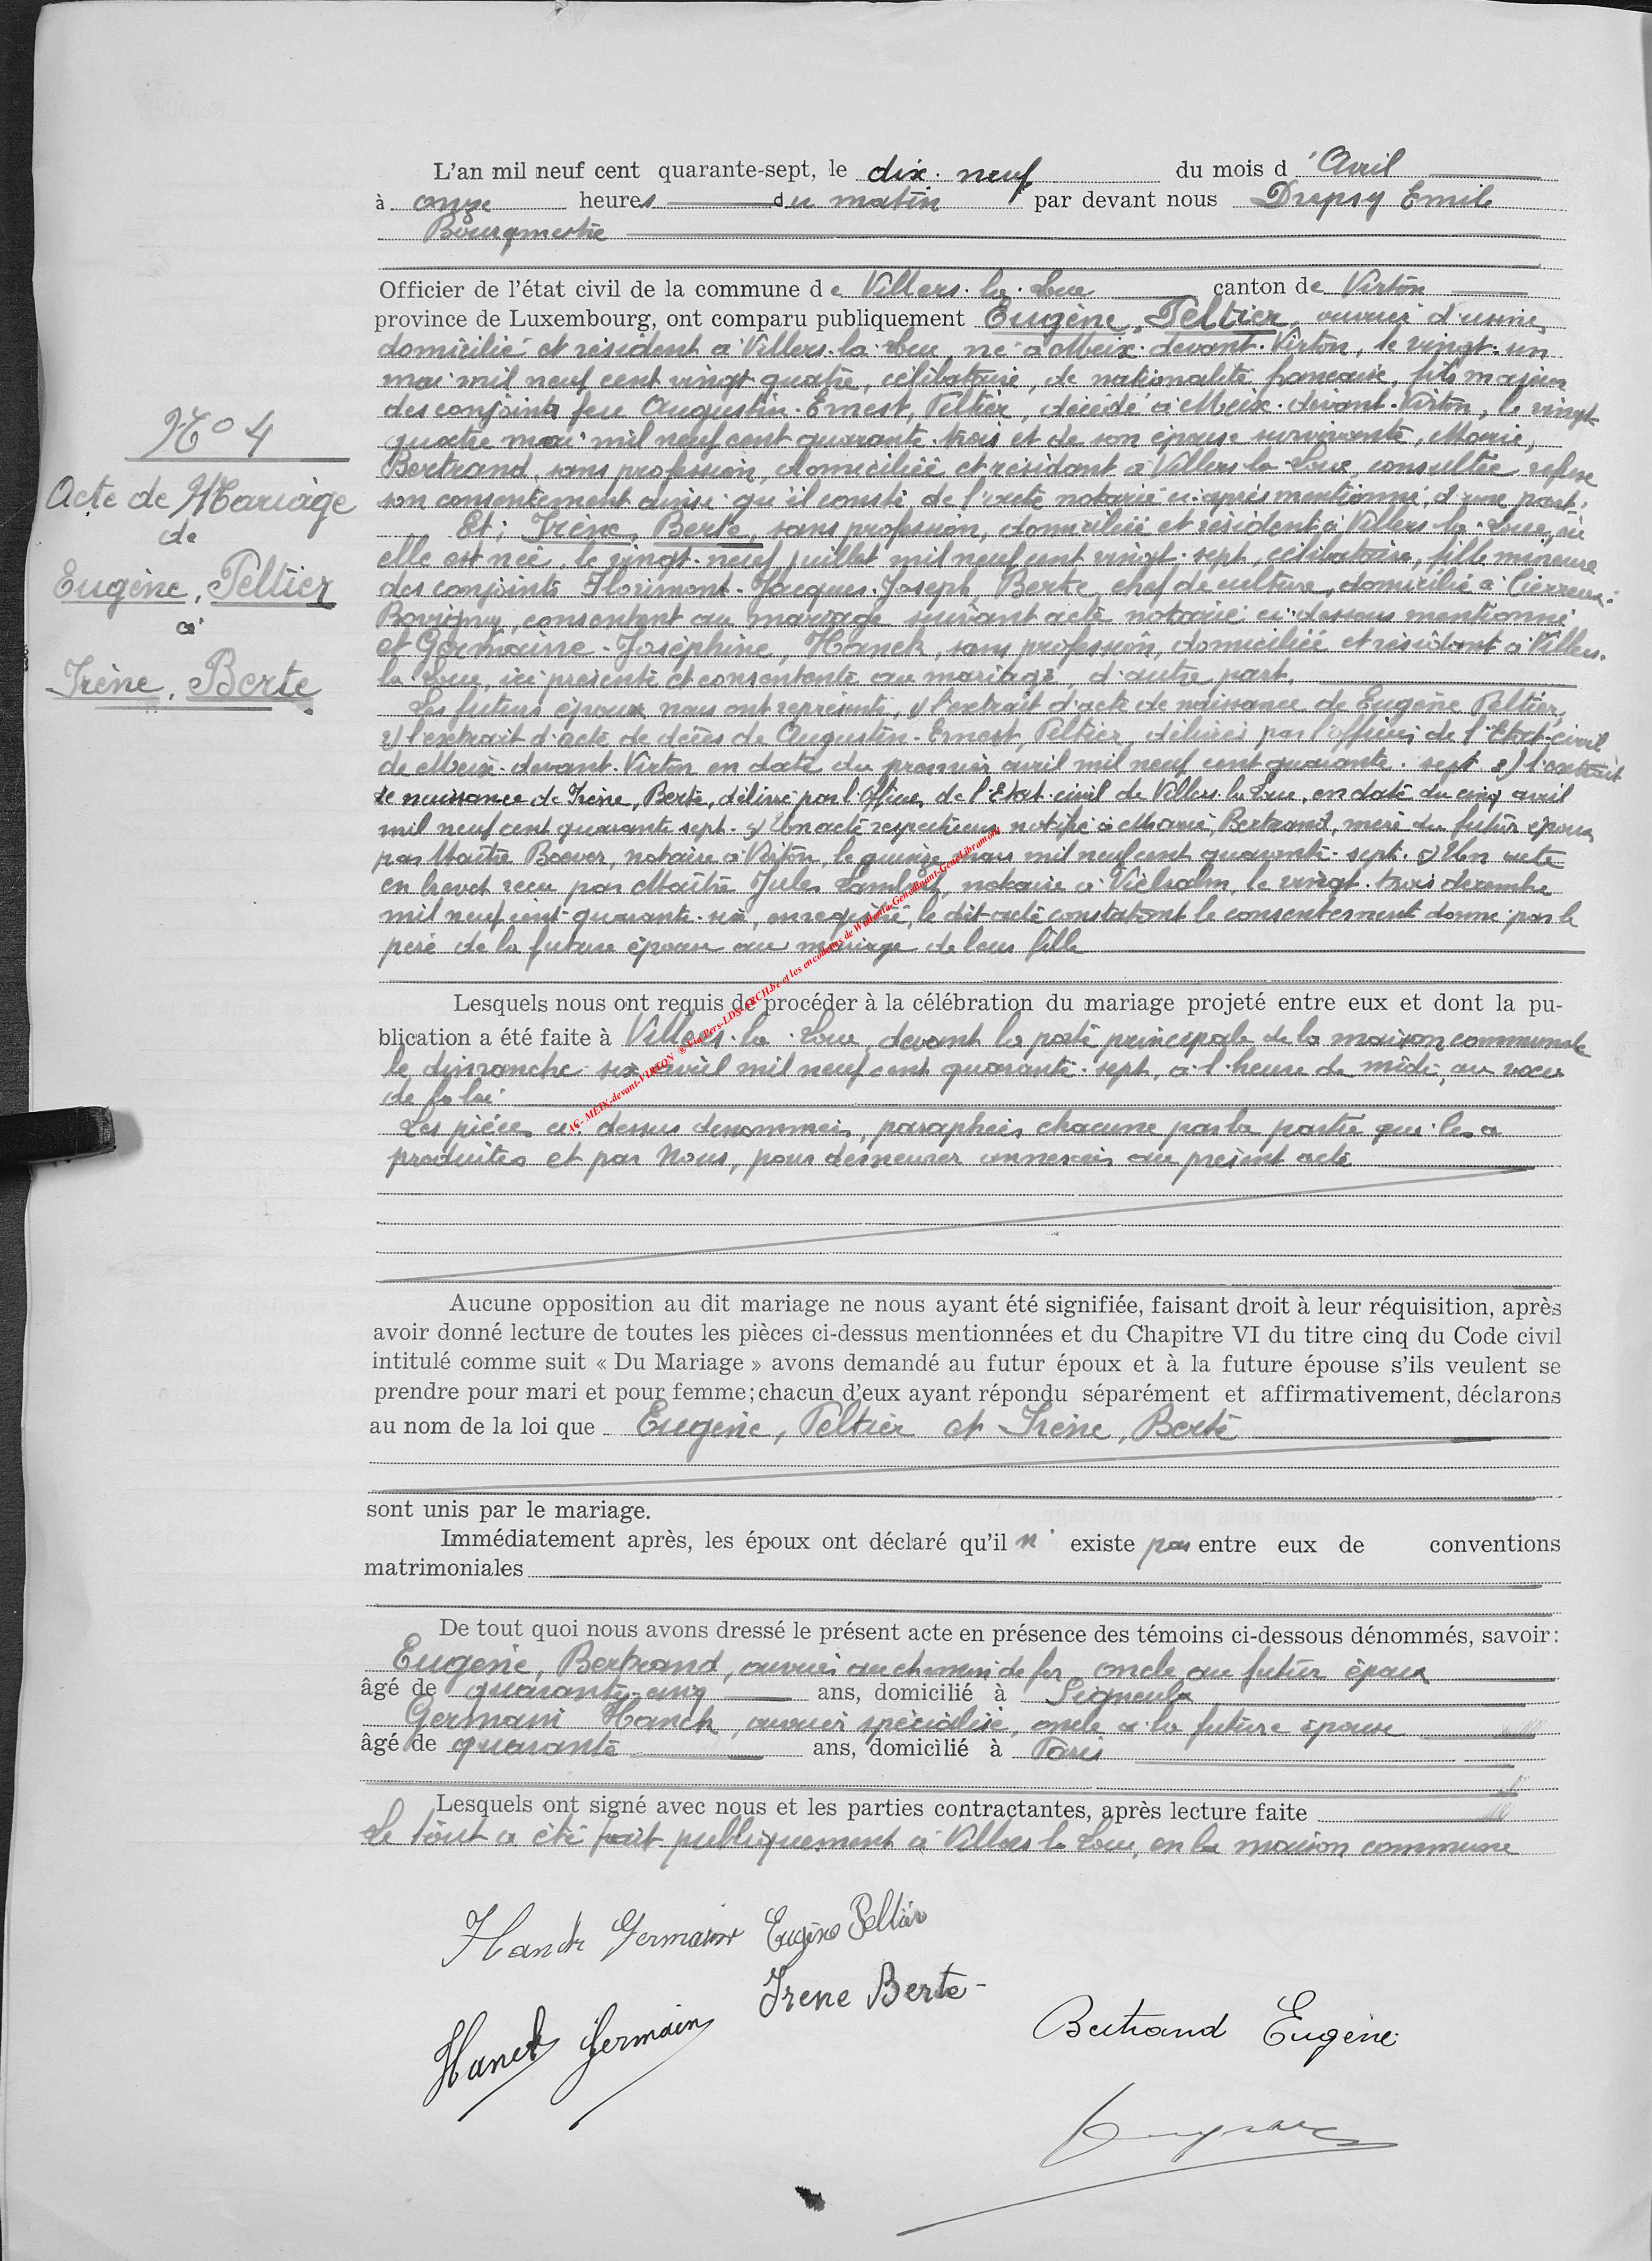 L'an mil neuf cent quarante-sept, le dix-neuf du mois d'Avril
à onze heures du matin par devant nous Drepsy Emile
Bourgmestre
Officier de l'état civil de la commune de Villers-la-Loue canton de Virton
province de Luxembourg, ont comparu publiquement Eugène, Peltier, ouvrier d'usine,
domicilié et résident à Villers-la-Loue, né à Meix-devant-Virton, le vingt-un
mai mil neuf cent vingt quatre, célibataire, de nationalité française, fils majeur
des conjoints feu Augustin-Ernest, Peltier, décédé à Meix-devant-Virton, le vingt-
quatre mai mil neuf cent quarante-trois et de son épouse survivante, Marie,
Bertrand, sans profession, domiciliée et résidant à Villers-la-Loue, consultée refuse
son consentement ainsi qu'il conste de l'acte notarié ci-après mentionné, d'une part.
Et; Irène, Berte, sans profession, domiciliée et résident à Villers-la-Loue, où
elle est née, le vingt-neuf juillet mil neuf cent vingt-sept, célibataire, fille mineure
des conjoints Florimont-Jacques-Joseph, Berte, chef de culture, domicilié à Cierreux-
Bovigny, consentent au mariage suivant acte notarié ci-dessous mentionné
et Germaine-Joséphine, Hanck, sans profession, domiciliée et résidant à Villers-
la-Loue, ici présente et consentente au mariage, d'autre part.
Les futurs époux nous ont représenté, 1) l'extrait d'acte de naissance de Eugène Peltier,
2) l'extrait d'acte de décès de Augustin-Ernest, Peltier, délivrés par l'officier de l'Etat-civil
de Meix-devant-Virton en date du premier avril mil neuf cent quarante-sept 3) l'extrait
de naissance de Irène, Berte, délivré par l'Officier de l'Etat-civil de Villers-la-Loue, en date du cinq avril
mil neuf cent quarante sept. 4) Un acte respectueux notifié à Marie, Bertrand, mère du futur époux
par Maître Boever, notaire à Virton, le quinze mars mil neuf cent quarante-sept. 5) Un acte
en brevet reçu par Maître Jules Lambert, notaire à Vielsalm, le vingt-trois décembre
mil neuf cent quarante-six, enregistré, le dit acte constatant le consentement donné par le
père de la future épouse au mariage de leur fille
Lesquels nous ont requis de procéder à la célébration du mariage projeté entre eux et dont la pu-
blication a été faite à Villers-la-Loue, devant la porte principale de la maison communale
le dimanche six avril mil neuf cent quarante-sept, à l'heure de midi, au vœu
de la loi.
Les pièces ci-dessus dénommées, paraphées chacune par la partie qui les a
produites et par Nous, pour demeurer annexées au présent acte
Aucune opposition au dit mariage ne nous ayant été signifiée, faisant droit à leur réquisition, après
avoir donné lecture de toutes les pièces ci-dessus mentionnées et du Chapitre VI du titre cinq du Code civil
intitulé comme suit « Du Mariage » avons demandé au futur époux et à la future épouse s'ils veulent se
prendre pour mari et pour femme; chacun d'eux ayant répondu séparément et affirmativement, déclarons
au nom de la loi que Eugène, Peltier et Irène, Berte
sont unis par le mariage.
Immédiatement après, les époux ont déclaré qu'il n'existe pas entre eux de conventions
matrimoniales
De tout quoi nous avons dressé le présent acte en présence des témoins ci-dessous dénommés, savoir:
Eugène, Bertrand, ouvrier au chemin de fer, oncle au futur époux
âgé de quarante-cinq ans, domicilié à Signeulx
Germain Hanck, ouvrier spécialisé, oncle à la future épouse
âgé de quarante ans, domicilié à Paris
Lesquels ont signé avec nous et les parties contractantes, après lecture faite
Le tout a été fait publiquement à Villers-la-Loue, en la maison commune
N° 4
Acte de Mariage
de
Eugène, Peltier
à
Irène, Berte
Hanck Germaine Eugène Peltier
Irene Berte
Hanck Germain
Bertrand Eugène